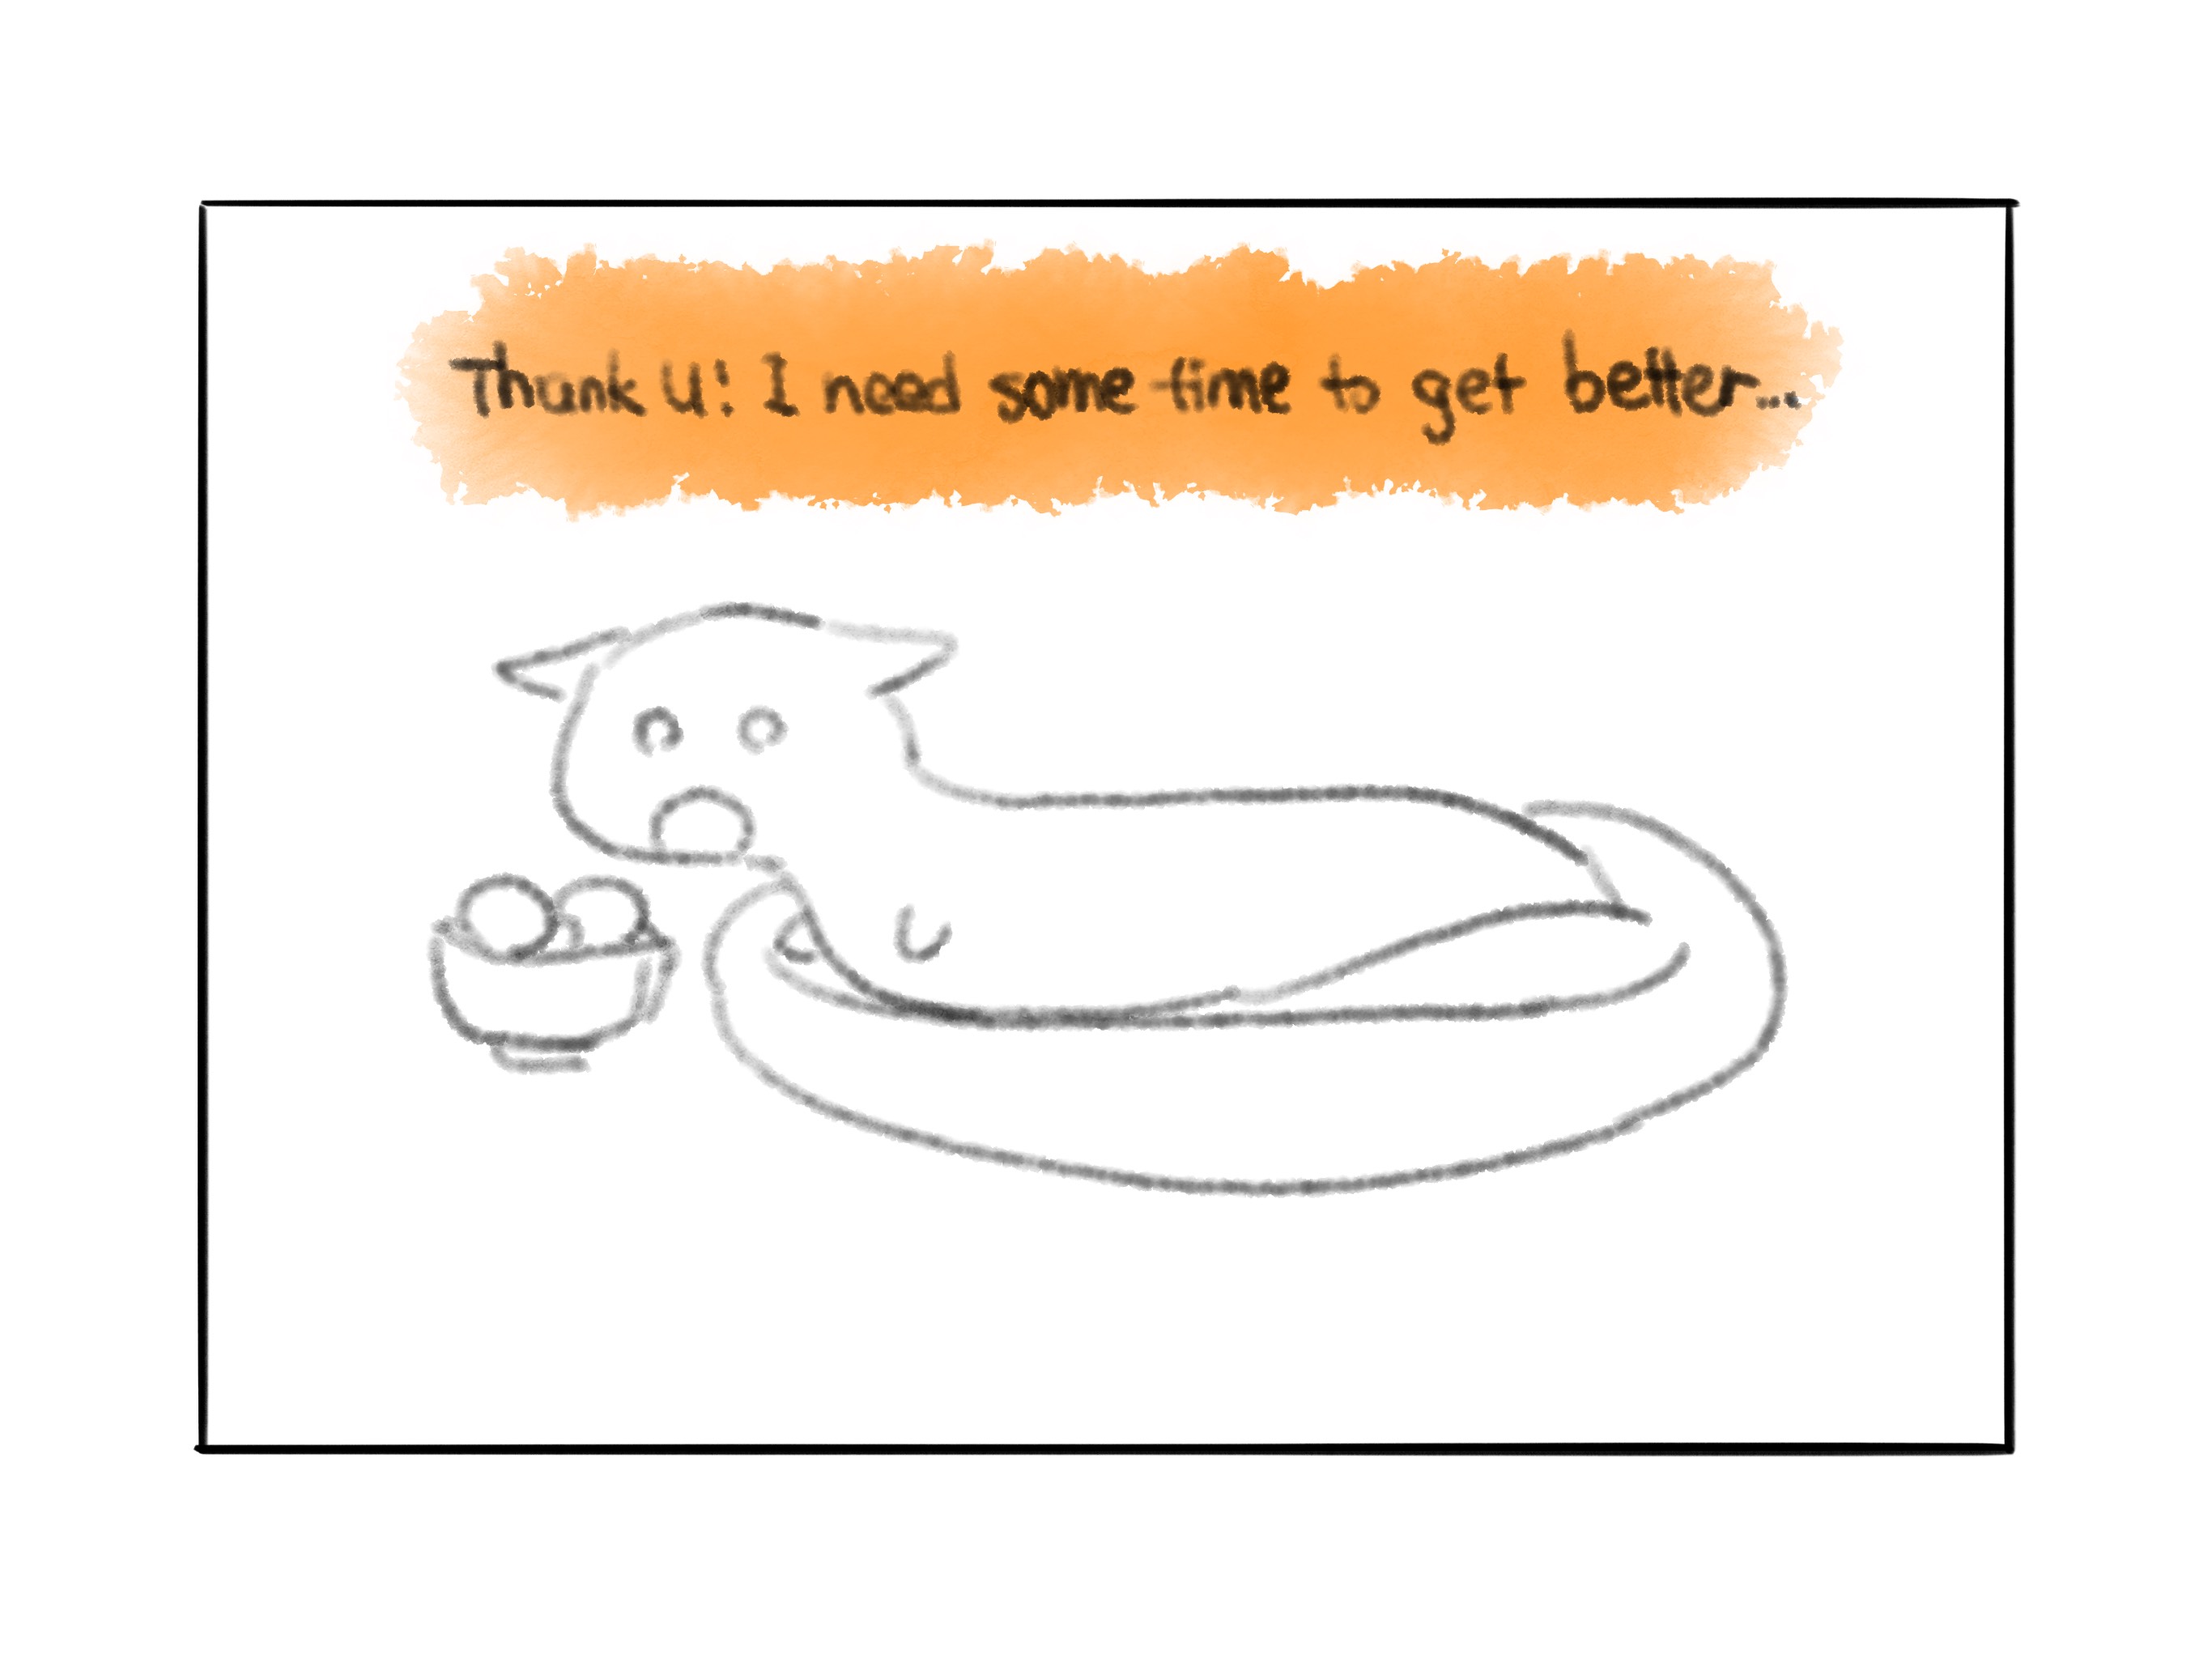 Thank U! I need some time to get better...